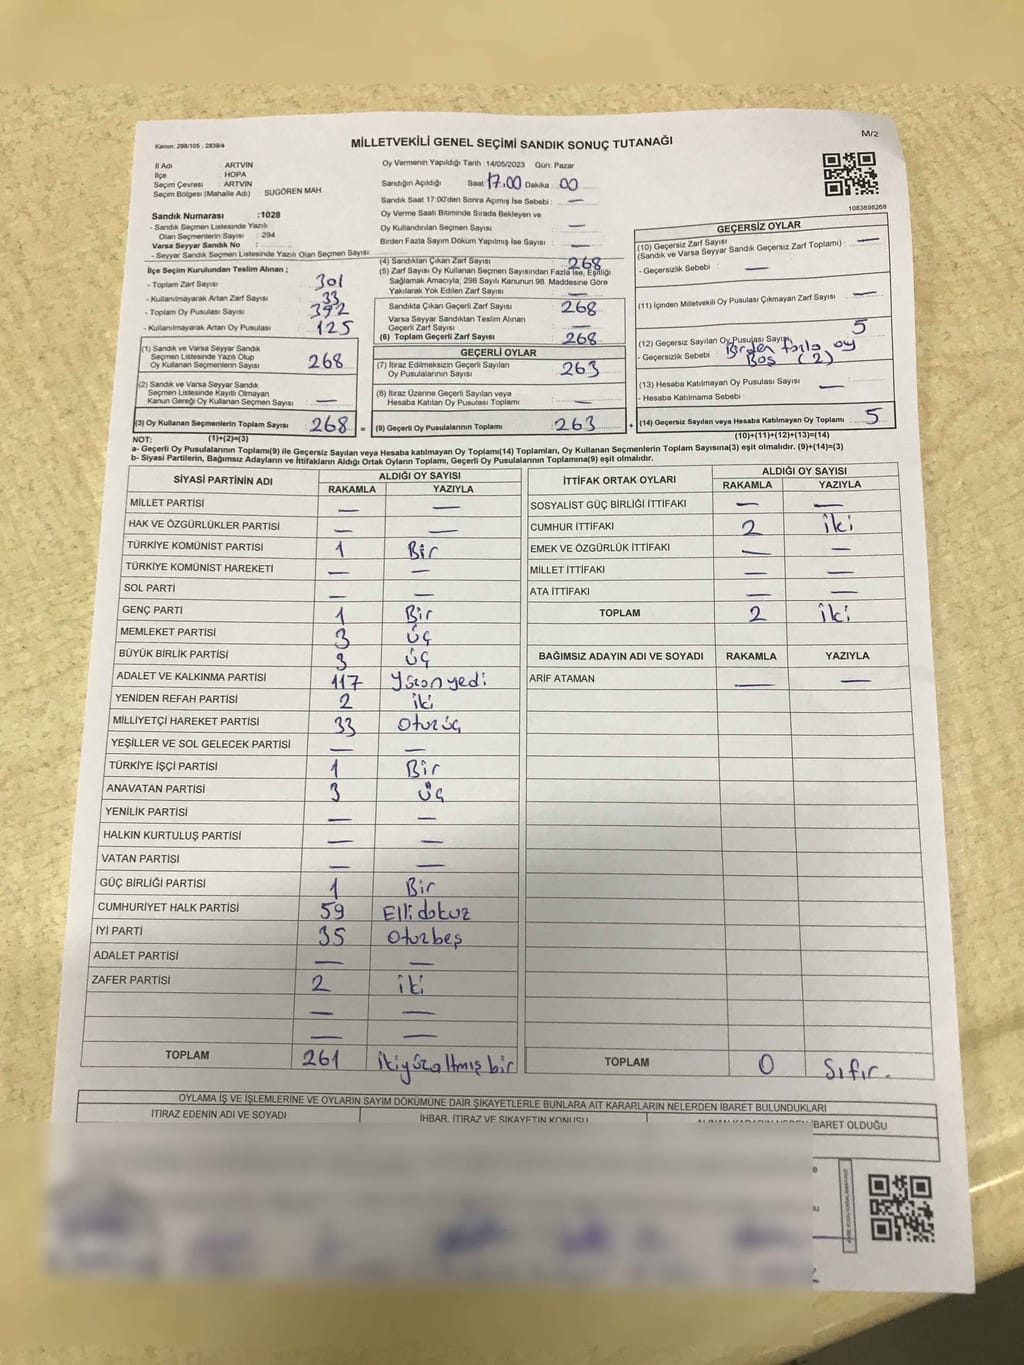 M/2
Kanun: 298/105 , 2839/4
MİLLETVEKİLİ GENEL SEÇİMİ SANDIK SONUÇ TUTANAĞI
İl Adı : ARTVİN
İlçe : HOPA
Seçim Çevresi : ARTVİN
Seçim Bölgesi (Mahalle Adı) SUGÖREN MAH.
Sandık Numarası :1028
- Sandık Seçmen Listesinde Yazılı
Olan Seçmenlerin Sayısı : 294
Varsa Seyyar Sandık No :
- Seyyar Sandık Seçmen Listesinde Yazılı Olan Seçmen Sayısı:
Oy Vermenin Yapıldığı Tarih :14/05/2023 Gün: Pazar
Sandığın Açıldığı Saat 17.00 Dakika : 00
Sandık Saat 17.00'den Sonra Açılmış İse Sebebi : —
Oy Verme Saati Bitiminde Sırada Bekleyen ve
Oy Kullandırılan Seçmen Sayısı : —
Birden Fazla Sayım Döküm Yapılmış İse Sayısı : —
1083698268
İlçe Seçim Kurulundan Teslim Alınan ;
- Toplam Zarf Sayısı : 301
- Kullanılmayarak Artan Zarf Sayısı : 33
- Toplam Oy Pusulası Sayısı : 392
- Kullanılmayarak Artan Oy Pusulası : 125
(1) Sandık ve Varsa Seyyar Sandık
Seçmen Listesinde Yazılı Olup
Oy Kullanan Seçmenlerin Sayısı : 268
(2) Sandık ve Varsa Seyyar Sandık
Seçmen Listesinde Kayıtlı Olmayan
Kanun Gereği Oy Kullanan Seçmen Sayısı : —
(3) Oy Kullanan Seçmenlerin Toplam Sayısı : 268 =
(4) Sandıktan Çıkan Zarf Sayısı : 268
(5) Zarf Sayısı Oy Kullanan Seçmen Sayısından Fazla İse, Eşitliği
Sağlamak Amacıyla; 298 Sayılı Kanunun 98. Maddesine Göre
Yakılarak Yok Edilen Zarf Sayısı : —
Sandıkta Çıkan Geçerli Zarf Sayısı : 268
Varsa Seyyar Sandıktan Teslim Alınan
Geçerli Zarf Sayısı : —
(6) Toplam Geçerli Zarf Sayısı : 268
GEÇERLİ OYLAR
(7) İtiraz Edilmeksizin Geçerli Sayılan
Oy Pusulalarının Sayısı : 263
(8) İtiraz Üzerine Geçerli Sayılan veya
Hesaba Katılan Oy Pusulası Toplamı : —
(9) Geçerli Oy Pusulalarının Toplamı : 263 +
GEÇERSİZ OYLAR
(10) Geçersiz Zarf Sayısı
(Sandık ve Varsa Seyyar Sandık Geçersiz Zarf Toplamı) : —
- Geçersizlik Sebebi : —
(11) İçinden Milletvekili Oy Pusulası Çıkmayan Zarf Sayısı : —
(12) Geçersiz Sayılan Oy Pusulası Sayısı : 5
- Geçersizlik Sebebi : Birden fazla oy
Boş (2)
(13) Hesaba Katılmayan Oy Pusulası Sayısı : —
- Hesaba Katılmama Sebebi :
(14) Geçersiz Sayılan veya Hesaba Katılmayan Oy Toplamı : 5
NOT: (1)+(2)=(3) (10)+(11)+(12)+(13)=(14)
a- Geçerli Oy Pusulalarının Toplamı(9) ile Geçersiz Sayılan veya Hesaba katılmayan Oy Toplamı(14) Toplamları, Oy Kullanan Seçmenlerin Toplam Sayısına(3) eşit olmalıdır. (9)+(14)=(3)
b- Siyasi Partilerin, Bağımsız Adayların ve İttifakların Aldığı Ortak Oyların Toplamı, Geçerli Oy Pusulalarının Toplamına(9) eşit olmalıdır.
SİYASİ PARTİNİN ADI ALDIĞI OY SAYISI
RAKAMLA YAZIYLA
MİLLET PARTİSİ — —
HAK VE ÖZGÜRLÜKLER PARTİSİ — —
TÜRKİYE KOMÜNİST PARTİSİ 1 Bir
TÜRKİYE KOMÜNİST HAREKETİ — —
SOL PARTİ — —
GENÇ PARTİ 1 Bir
MEMLEKET PARTİSİ 3 üç
BÜYÜK BİRLİK PARTİSİ 3 üç
ADALET VE KALKINMA PARTİSİ 117 Yüzonyedi
YENİDEN REFAH PARTİSİ 2 iki
MİLLİYETÇİ HAREKET PARTİSİ 33 Otuzüç
YEŞİLLER VE SOL GELECEK PARTİSİ — —
TÜRKİYE İŞÇİ PARTİSİ 1 Bir
ANAVATAN PARTİSİ 3 üç
YENİLİK PARTİSİ — —
HALKIN KURTULUŞ PARTİSİ — —
VATAN PARTİSİ — —
GÜÇ BİRLİĞİ PARTİSİ 1 Bir
CUMHURİYET HALK PARTİSİ 59 Ellidokuz
İYİ PARTİ 35 Otuzbeş
ADALET PARTİSİ — —
ZAFER PARTİSİ 2 iki
— —
— —
TOPLAM 261 ikiyüzaltmışbir
İTTİFAK ORTAK OYLARI ALDIĞI OY SAYISI
RAKAMLA YAZIYLA
SOSYALİST GÜÇ BİRLİĞİ İTTİFAKI — —
CUMHUR İTTİFAKI 2 iki
EMEK VE ÖZGÜRLÜK İTTİFAKI — —
MİLLET İTTİFAKI — —
ATA İTTİFAKI — —
TOPLAM 2 iki
BAĞIMSIZ ADAYIN ADI VE SOYADI RAKAMLA YAZIYLA
ARİF ATAMAN — —
TOPLAM 0 Sıfır.
OYLAMA İŞ VE İŞLEMLERİNE VE OYLARIN SAYIM DÖKÜMÜNE DAİR ŞİKAYETLERLE BUNLARA AİT KARARLARIN NELERDEN İBARET BULUNDUKLARI
İTİRAZ EDENİN ADI VE SOYADI İHBAR, İTİRAZ VE ŞİKAYETİN KONUSU İBARET OLDUĞU